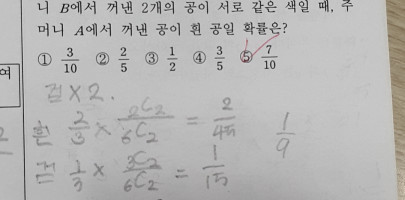 니 B에서 꺼낸 2개의 공이 서로 같은 색일 때, 주
머니 A에서 꺼낸 공이 흰 공일 확률은?
① 3/10 ② 2/5 ③ 1/2 ④ 3/5 ⑤ 7/10
여
검 X 2.
흰 2/3 × 2C2/6C2 = 2/45
검 1/3 × 3C2/6C2 = 1/15
1/9